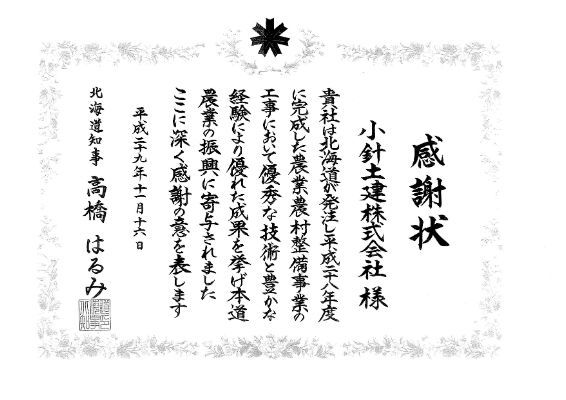 感謝状
小針土建株式会社 様
貴社は北海道が発注し平成二八年度
に完成した農業農村整備事業の
工事において優秀な技術と豊かな
経験により優れた成果を挙げ本道
農業の振興に寄与されました
ここに深く感謝の意を表します
平成二九年十一月十六日
北海道知事 高橋 はるみ